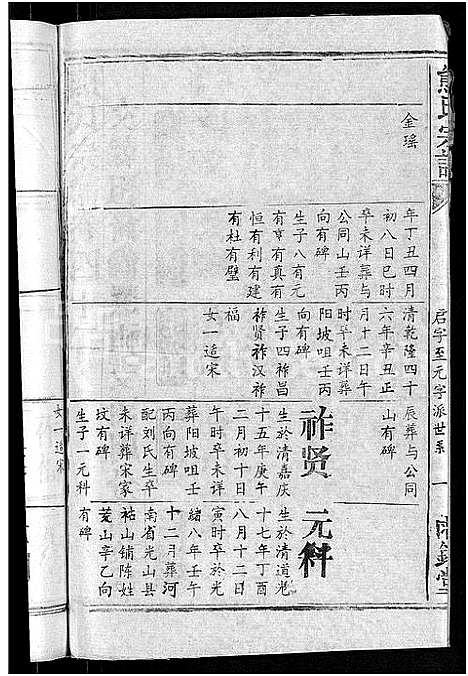 熊氏宗譜
启字至元字派世系
一
金瑶
年丁丑四月
初八日巳时
卒未详葬与
公同山壬丙
向有碑
生子八有元
有亨有真有
恒有利有建
有杜有璧
清乾隆四十
六年辛丑正
月十二日午
时卒未详葬
阳坡咀壬丙
向有碑
生子四祚昌
祚贤祚汉祚
福
女一适宋
辰葬与公同
山有碑
祚贤
生於清嘉庆
十五年庚午
二月初十日
午时卒未详
葬阳坡咀壬
丙向有碑
配刘氏生卒
未详葬宋家
坟有碑
生子一元科
女一适宋
元科
生於清道光
十七年丁酉
八月十二日
寅时卒於光
緒八年壬午
十二月葬河
南省光山县
祜山铺陈姓
茺山辛乙向
有碑